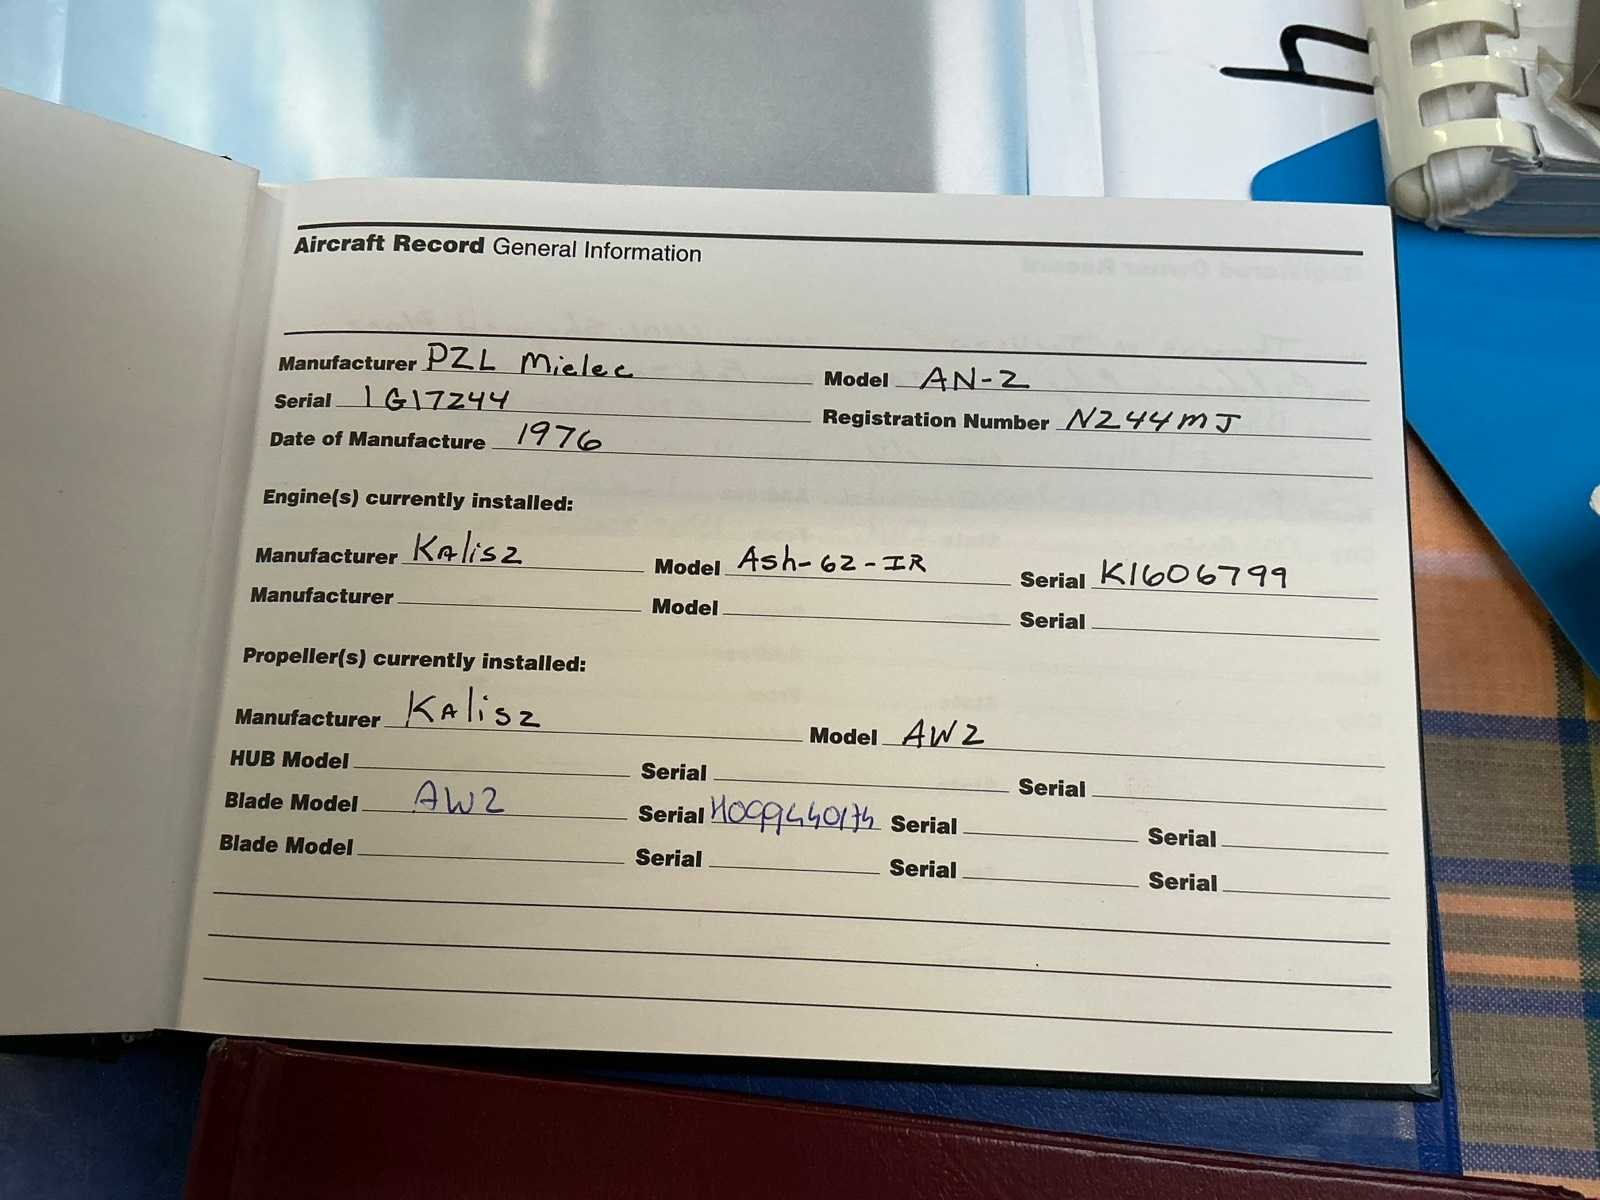 h
Aircraft Record General Information
Manufacturer PZL Mielec Model AN-2
Serial 1G17244 Registration Number N244MJ
Date of Manufacture 1976
Engine(s) currently installed:
Manufacturer Kalisz Model Ash-62-IR Serial K1606799
Manufacturer Model Serial
Propeller(s) currently installed:
Manufacturer Kalisz Model AW2
HUB Model Serial Serial
Blade Model AW2 Serial Serial Serial
Blade Model Serial Serial Serial